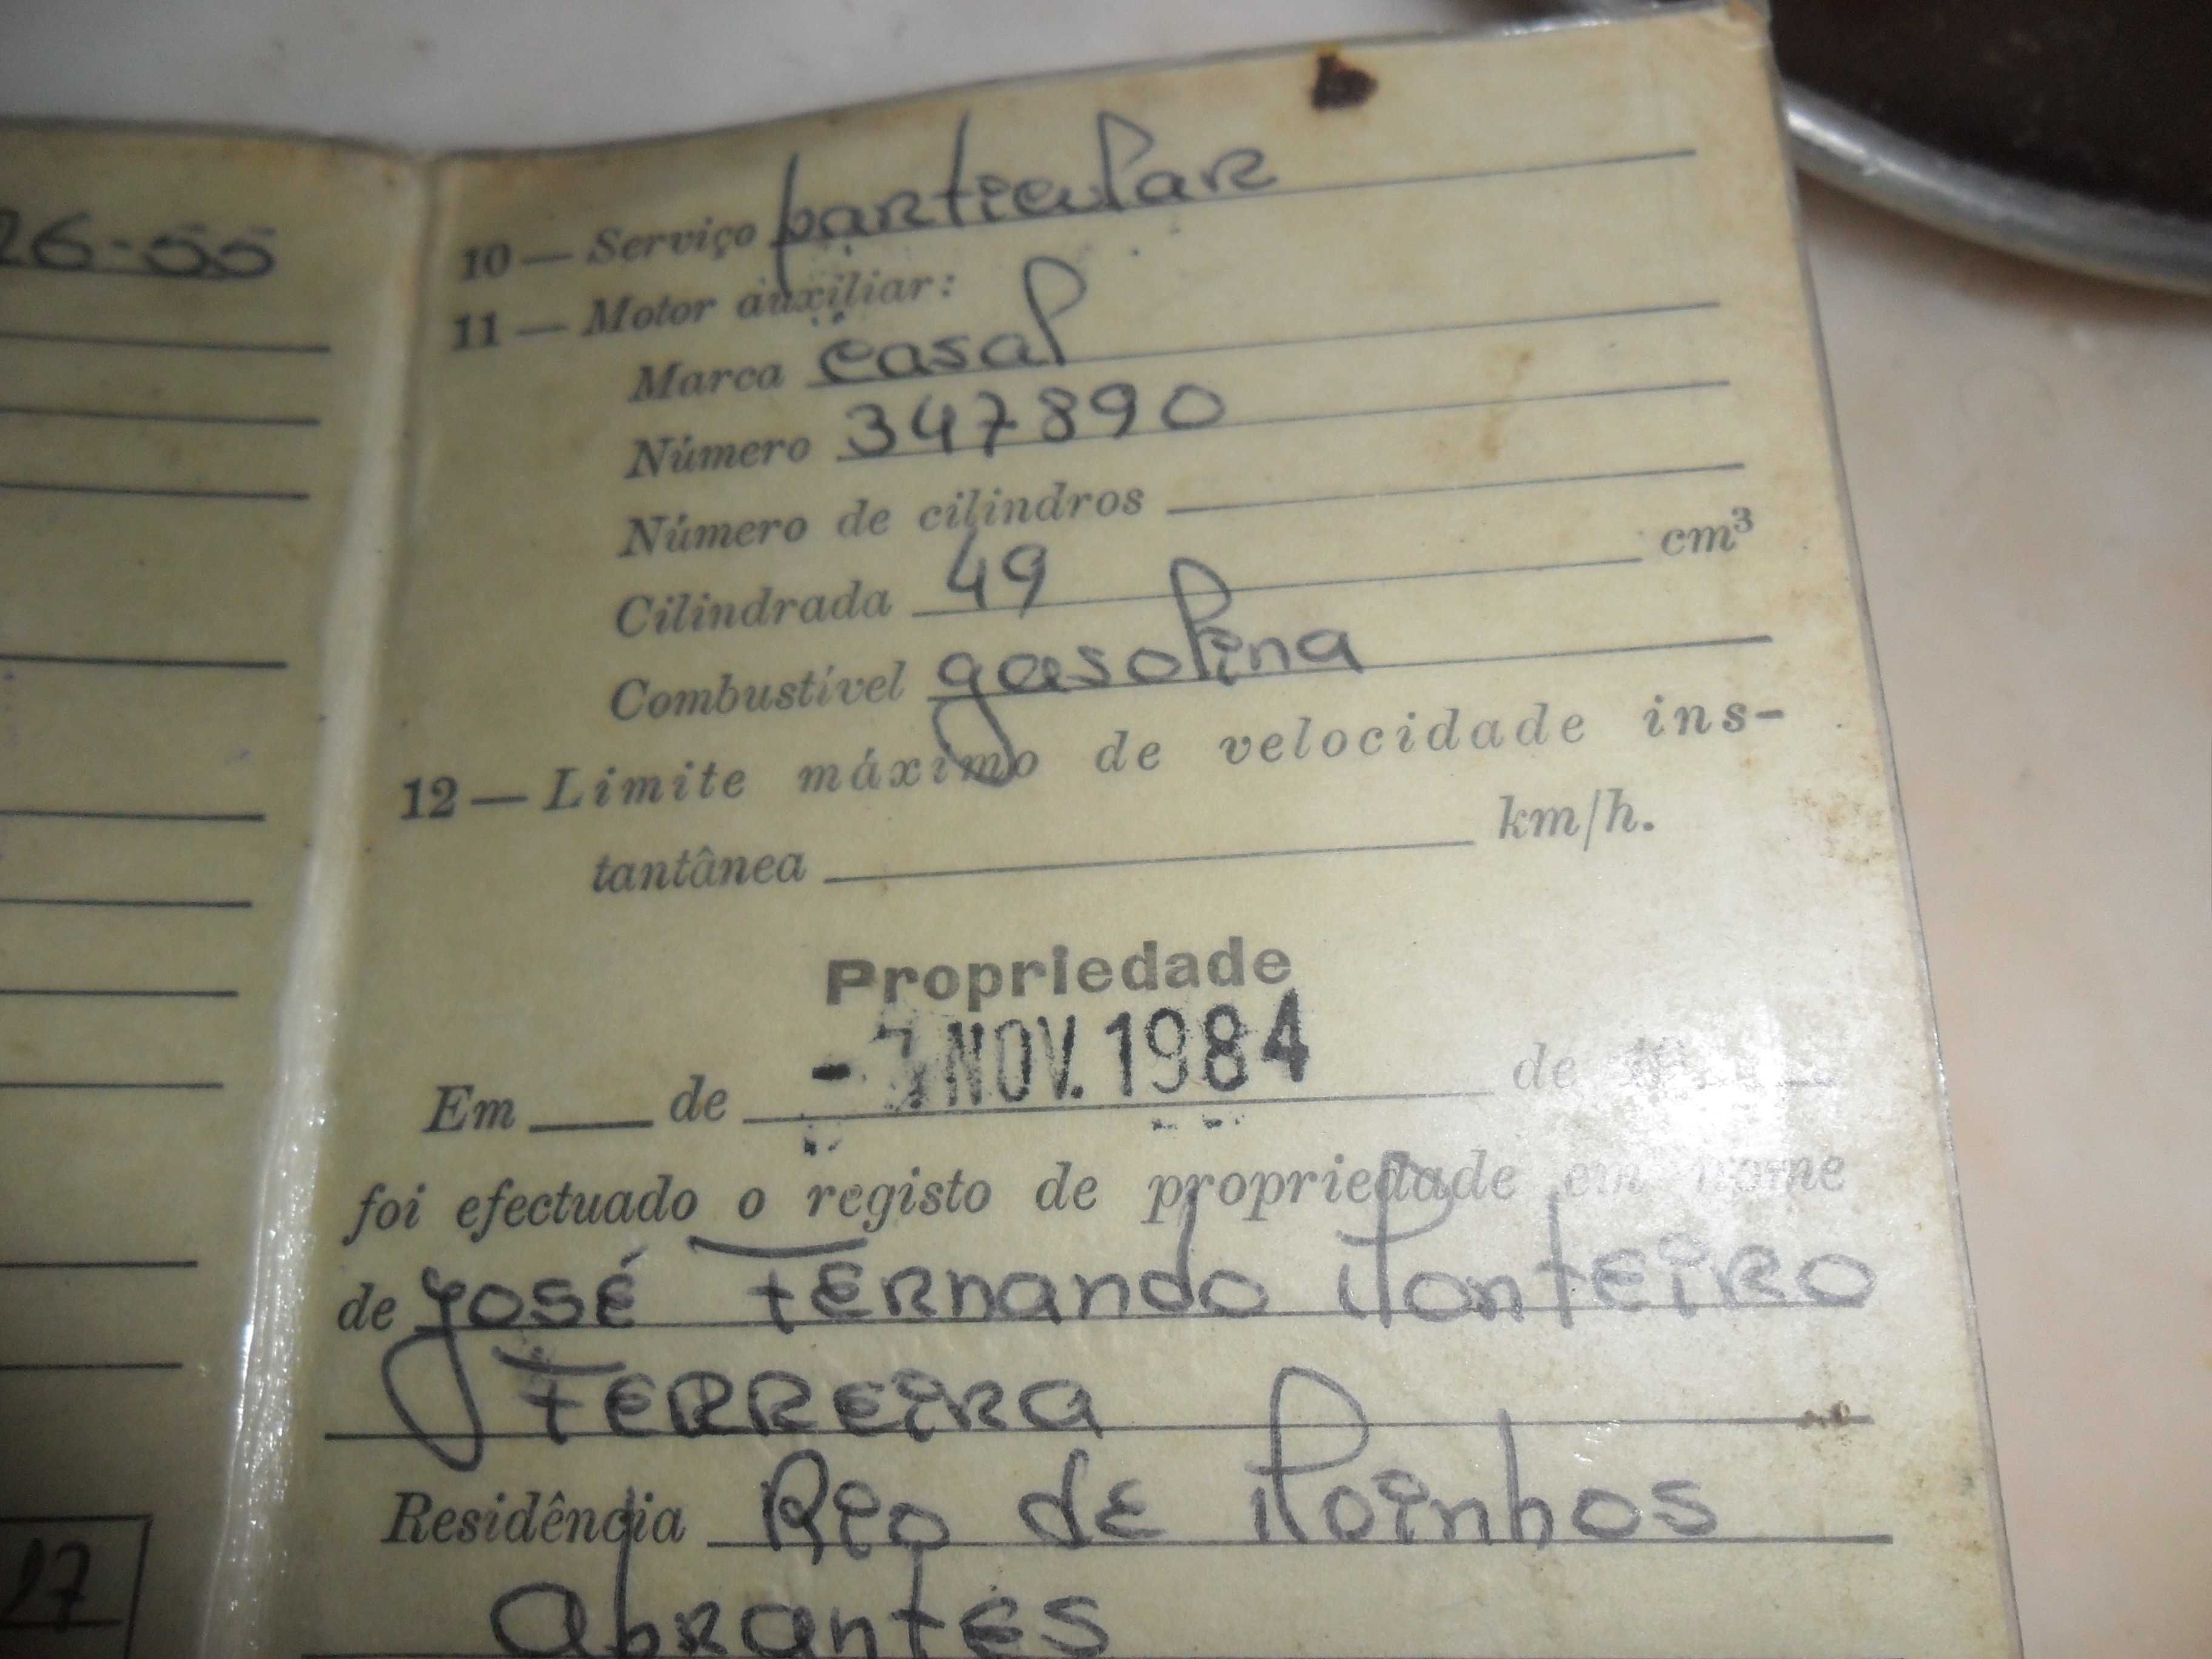 26-55
10 — Serviço particular
11 — Motor auxiliar:
Marca casal
Número 347890
Número de cilindros
Cilindrada 49 cm³
Combustível gasolina
12 — Limite máximo de velocidade ins-
tantânea km/h.
Propriedade
Em de - NOV. 1984 de 19
foi efectuado o registo de propriedade em nome
de José Fernando Monteiro
Ferreira
Residência Rio de Moinhos
Abrantes
17